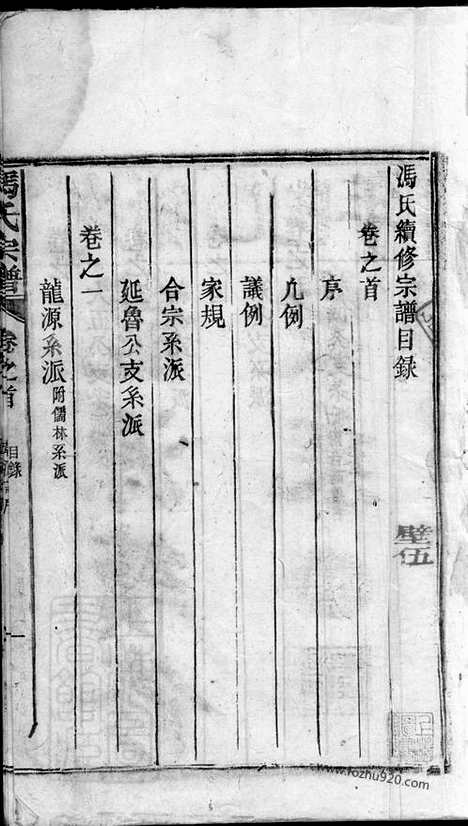 馮氏續修宗譜目錄
壁伍
卷之首
序
凡例
議例
家規
合宗系派
延魯公支系派
卷之一
龍源系派 附儒林系派
馮氏宗譜
卷之首
目錄
一
www.fozhu920.com